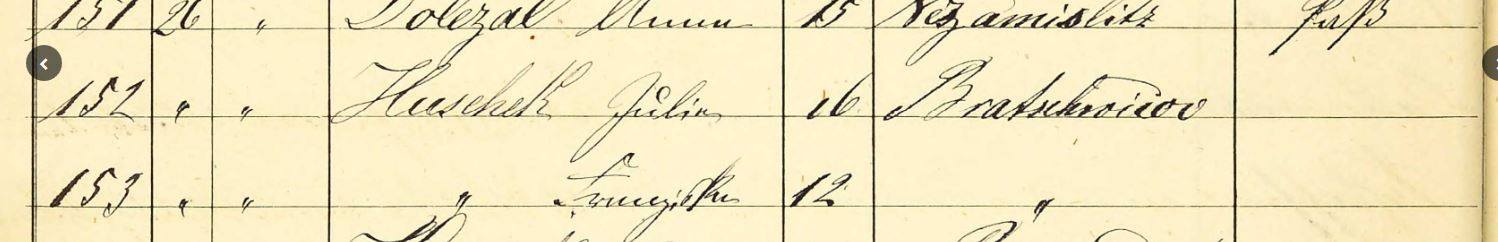 151 26 " Dolezal Anna 15 Nezamislitz Paß
152 " " Huschek Julie 16
153 " " " Franziska 12 "